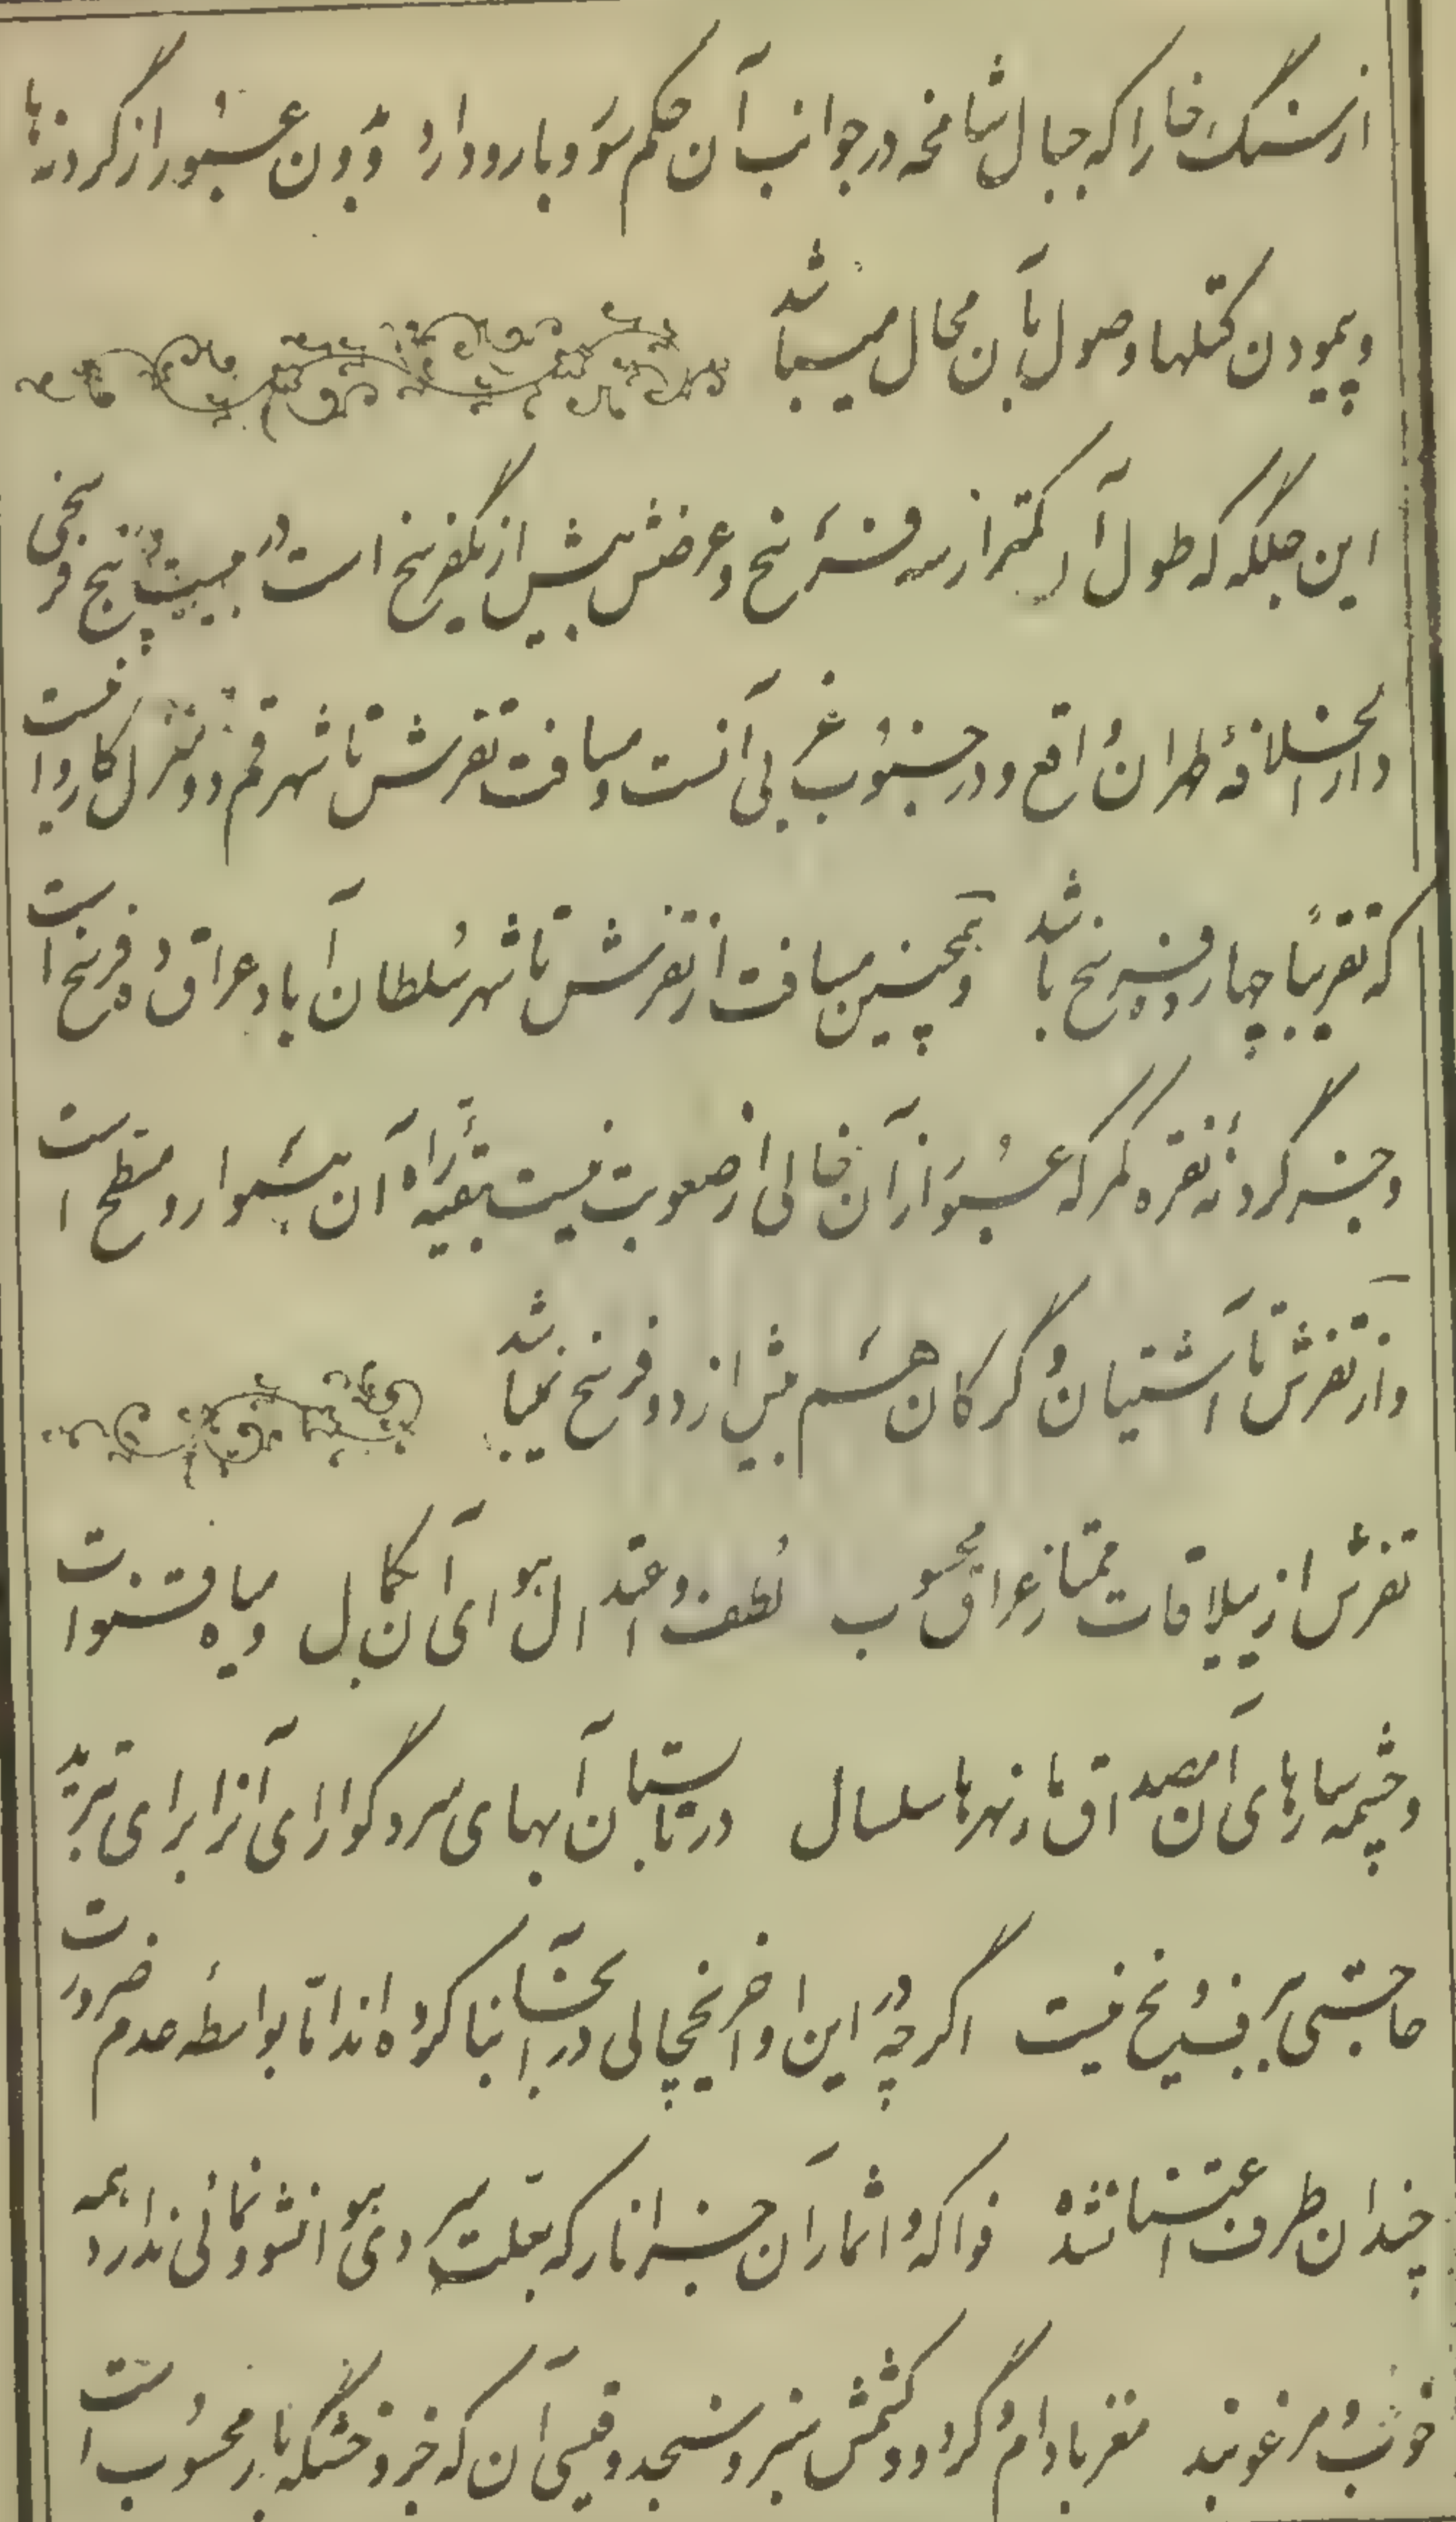 از سنگ خارا که جبال شامخه در جوانب آن حکم سور و بارو دارد و بدون عبور از گردنه‌ها
و پیمودن کتلها وصول بآن محال میباشد
این جلگه که طول آن کمتر از سه فرسخ و عرضش بیش از یکفرسخ است در بیست و پنج فرسخی
دار الخلافهٔ طهران واقع و در جنوب غربی آنست و مسافت تفرش تا شهر قم دو منزل کاروانیست
که تقریباً چهارده فرسخ باشد و همچنین مسافت از تفرش تا شهر سلطان آباد عراق ده فرسخ است
و جز گردنهٔ نقره کمر که عبور از آن خالی از صعوبت نیست بقیهٔ راه آن هموار و مسطح است
و از تفرش تا آشتیان و گرکان هم بیش از دو فرسخ نمیباشد
تفرش از ییلاقات ممتاز عراق محسوب لطف و اعتدال هوای آن بکمال و میاه قنوات
و چشمه سارهای آن مصداق ماء نهرها سلسال در تابستان آبهای سرد گوارای آنرا برای تبرید
حاجتی ببرف و یخ نیست اگرچه در این اواخر یخچالی در آنجا بنا کرده‌اند اما بواسطهٔ عدم ضرورت
چندان طرف اعتنا نشده فواکه و اثمار آن جز انار که بعلت سردی هوا نشو و نمائی ندارد همه
خوب و مرغوبند مغز بادام و گردو و کشمش سبز و سنجد و قیسی آن که جزو خشکه بار محسوب است